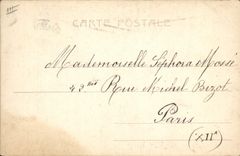 CARTE POSTALE
Mademoiselle Sephora Moïsé
42 bis Rue Michel Bizot
Paris
(XIIe)